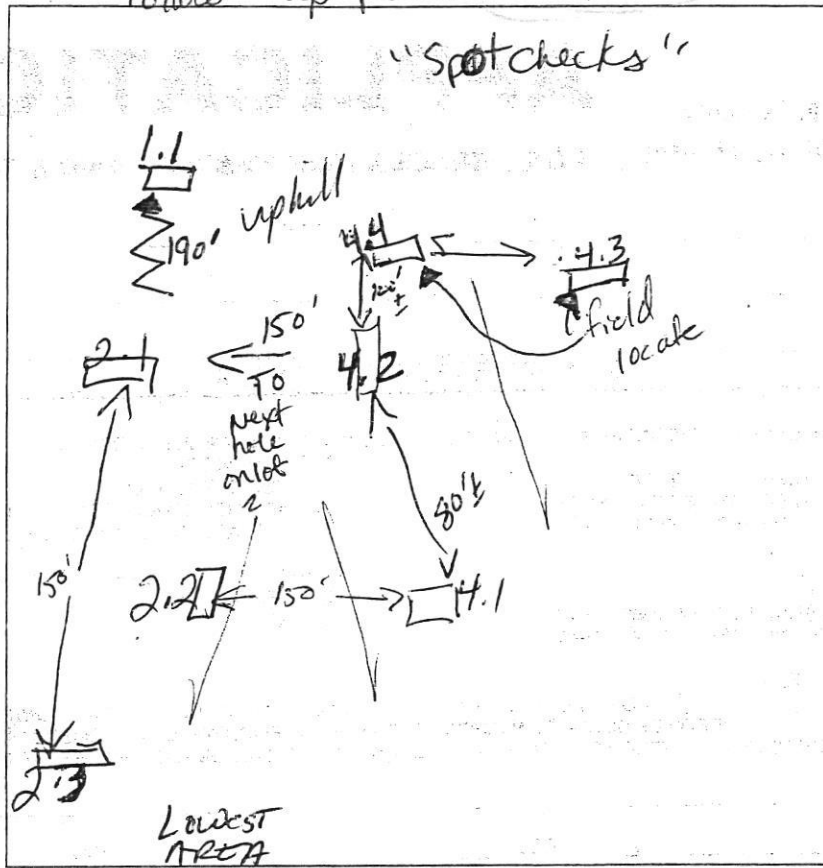 "Spot checks"
1.1
190' uphill
4.4
4.3
field
locate
150'
TO
next
hole
on lot
2
2.1
4.2
80'±
150'
2.2
150'
4.1
2.3
LOWEST
AREA